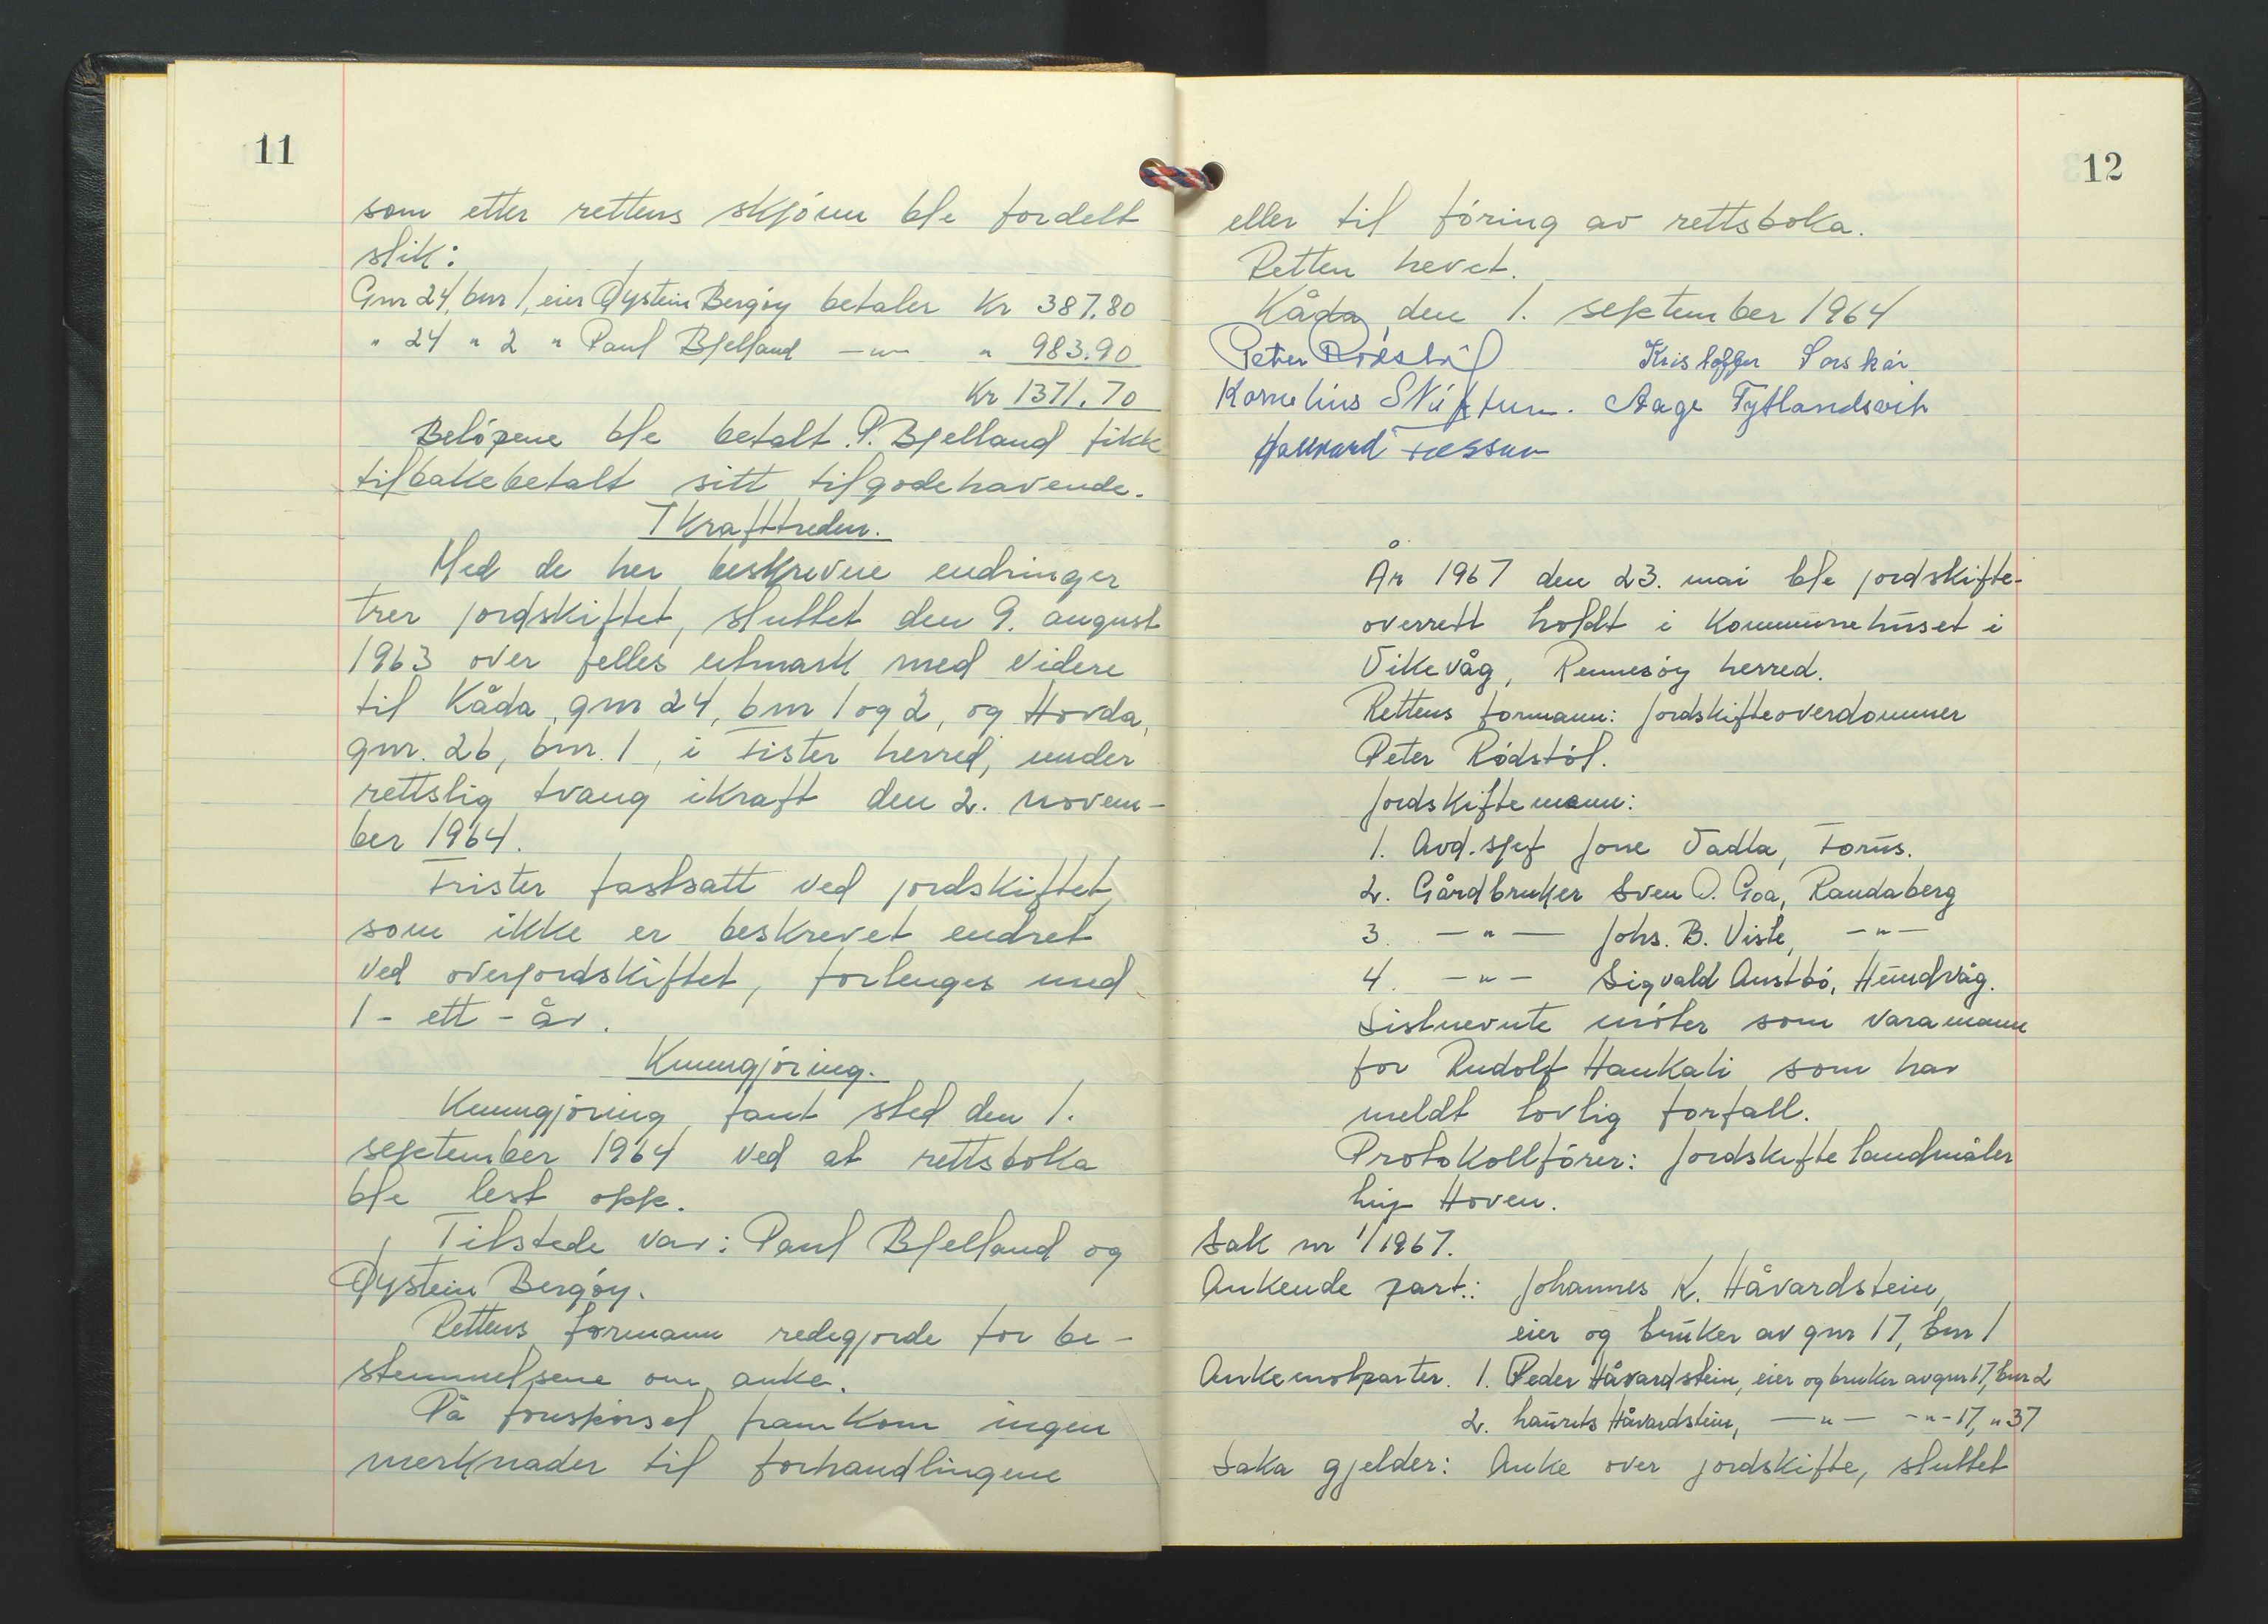 11
som etter rettens skjönn ble fordelt
slik:
Gnr 24, bnr 1, eier Øystein Bergöy betaler Kr 387.80
" 24 " 2 " Paul Bjelland —"— " 983.90
Kr 1371.70
Belöpene ble betalt. P. Bjelland fikk
tilbakebetalt sitt tilgodehavende.
Ikrafttreden.
Med de her beskrevne endringer
trer jordskiftet, sluttet den 9. august
1963 over felles utmark med videre
til Kåda, gnr 24, bnr 1 og 2, og Hovda,
gnr. 26, bnr. 1, i Fister herred, under
rettslig tvang ikraft den 2. novem-
ber 1964.
Frister fastsatt ved jordskiftet,
som ikke er beskrevet endret
ved overjordskiftet, forlenges med
1 - ett - år.
Kunngjöring.
Kunngjöring fant sted den 1.
september 1964 ved at rettsboka
ble lest opp.
Tilstede var: Paul Bjelland og
Øystein Bergöy.
Rettens formann redegjorde for be-
stemmelsene om anke.
På forespörsel framkom ingen
merknader til forhandlingene
12
eller til föring av rettsboka.
Retten hevet.
Kåda, den 1. september 1964
Peter Rödstöl Kristoffer
Kornelius Aage Tytlandsvik
År 1967 den 23. mai ble jordskifte-
overrett holdt i Kommunehuset i
Vikevåg, Rennesöy herred.
Rettens formann: Jordskifteoverdommer
Peter Rödstöl.
Jordskiftemenn:
1. Avd.sjef Jone Vadla, Forus.
2. Gårdbruker Sven O. Goa, Randaberg
3. —"— Johs. B. Viste, —"—
4. —"— Sigvald Austbö, Hundvåg.
Sistnevnte möter som varamann
for Rudolf Haukali som har
meldt lovlig forfall.
Protokollförer: Jordskiftelandmåler
Hoven.
Sak nr 1/1967.
Ankende part: Johannes K. Håvardstein,
eier og bruker av gnr 17, bnr 1
Ankemotparter. 1. Peder Håvardstein, eier og bruker av gnr 17, bnr 2
2. Laurits Håvardstein, —"— -"- 17, " 37
Saka gjelder: Anke over jordskifte, sluttet